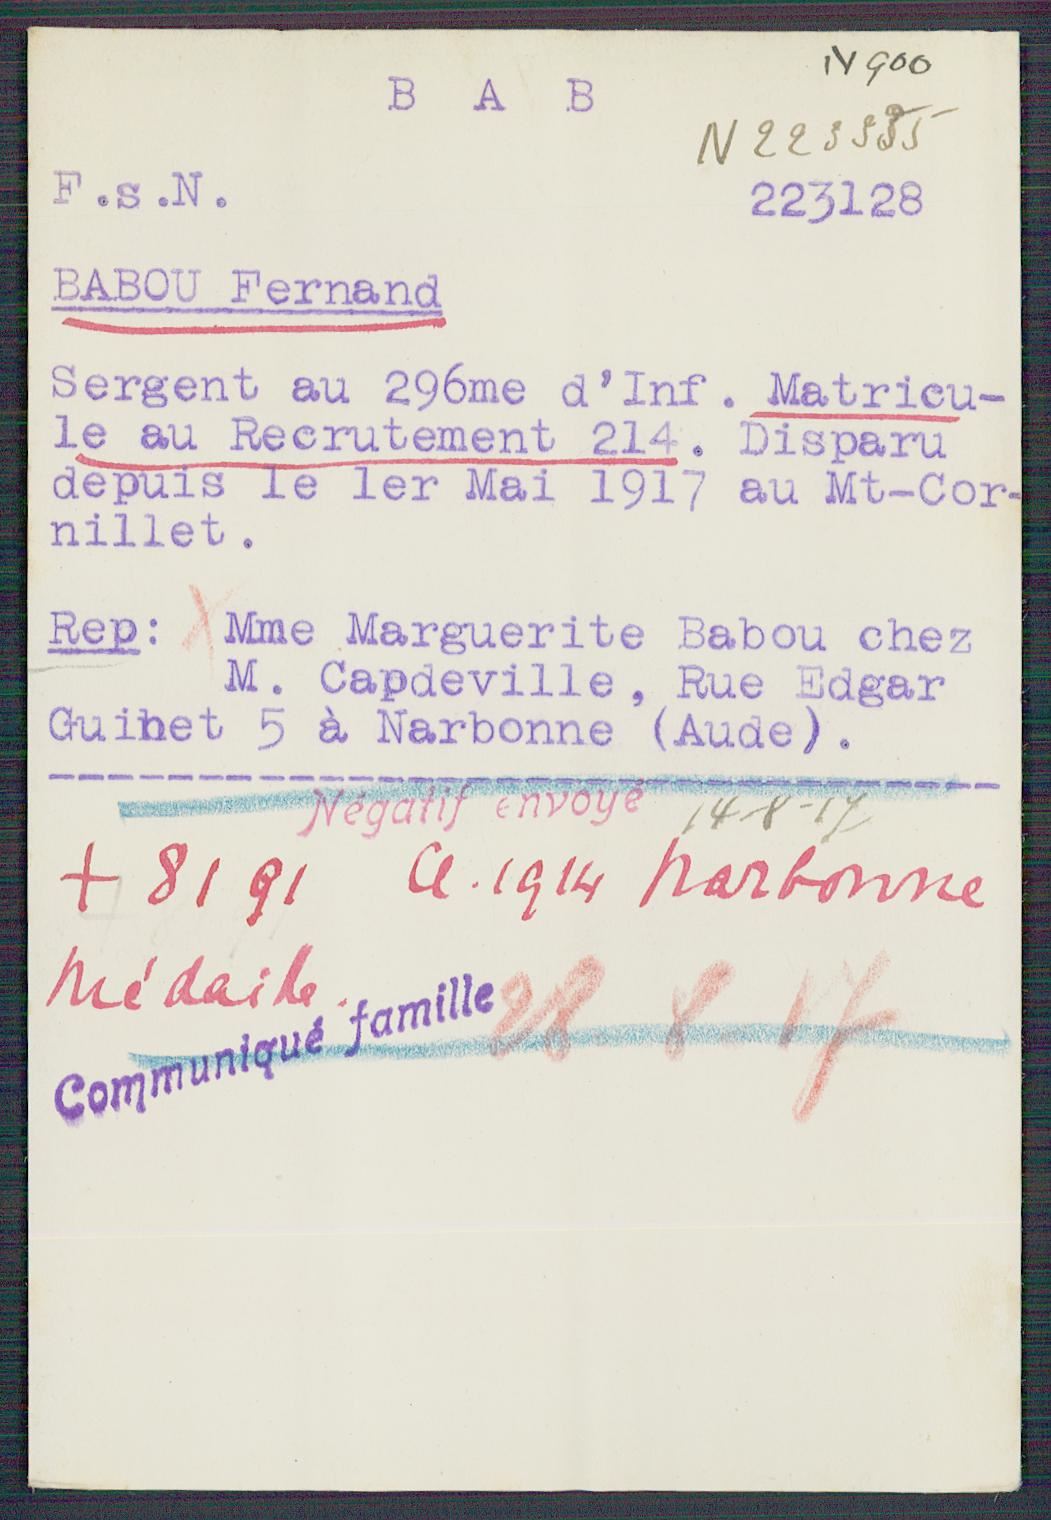 N 900
B A B
N 223
F.s.N.
223128
BABOU Fernand
Sergent au 296me d'Inf. Matricu-
le au Recrutement 214. Disparu
depuis le 1er Mai 1917 au Mt-Cor-
nillet.
Rep: X Mme Marguerite Babou chez
M. Capdeville, Rue Edgar
Guinet 5 à Narbonne (Aude).
Négatif envoyé 14-8-17
+ 8191 Cl. 1914 Narbonne
Médaille.
Communiqué famille 28-8-17